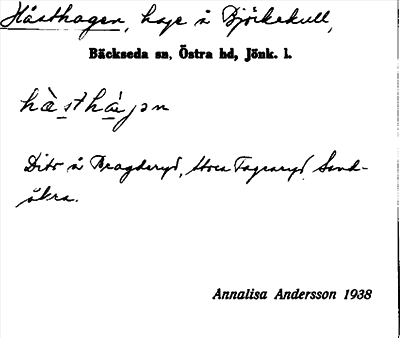 Hästhagen, hage å Björkekull,
Bäckseda sn, Östra hd, Jönk. l.
hà̠sthǻ̠gən
Dito å Bragderyd, Stora Fagraryd, Sand-
åkra.
Annalisa Andersson 1938